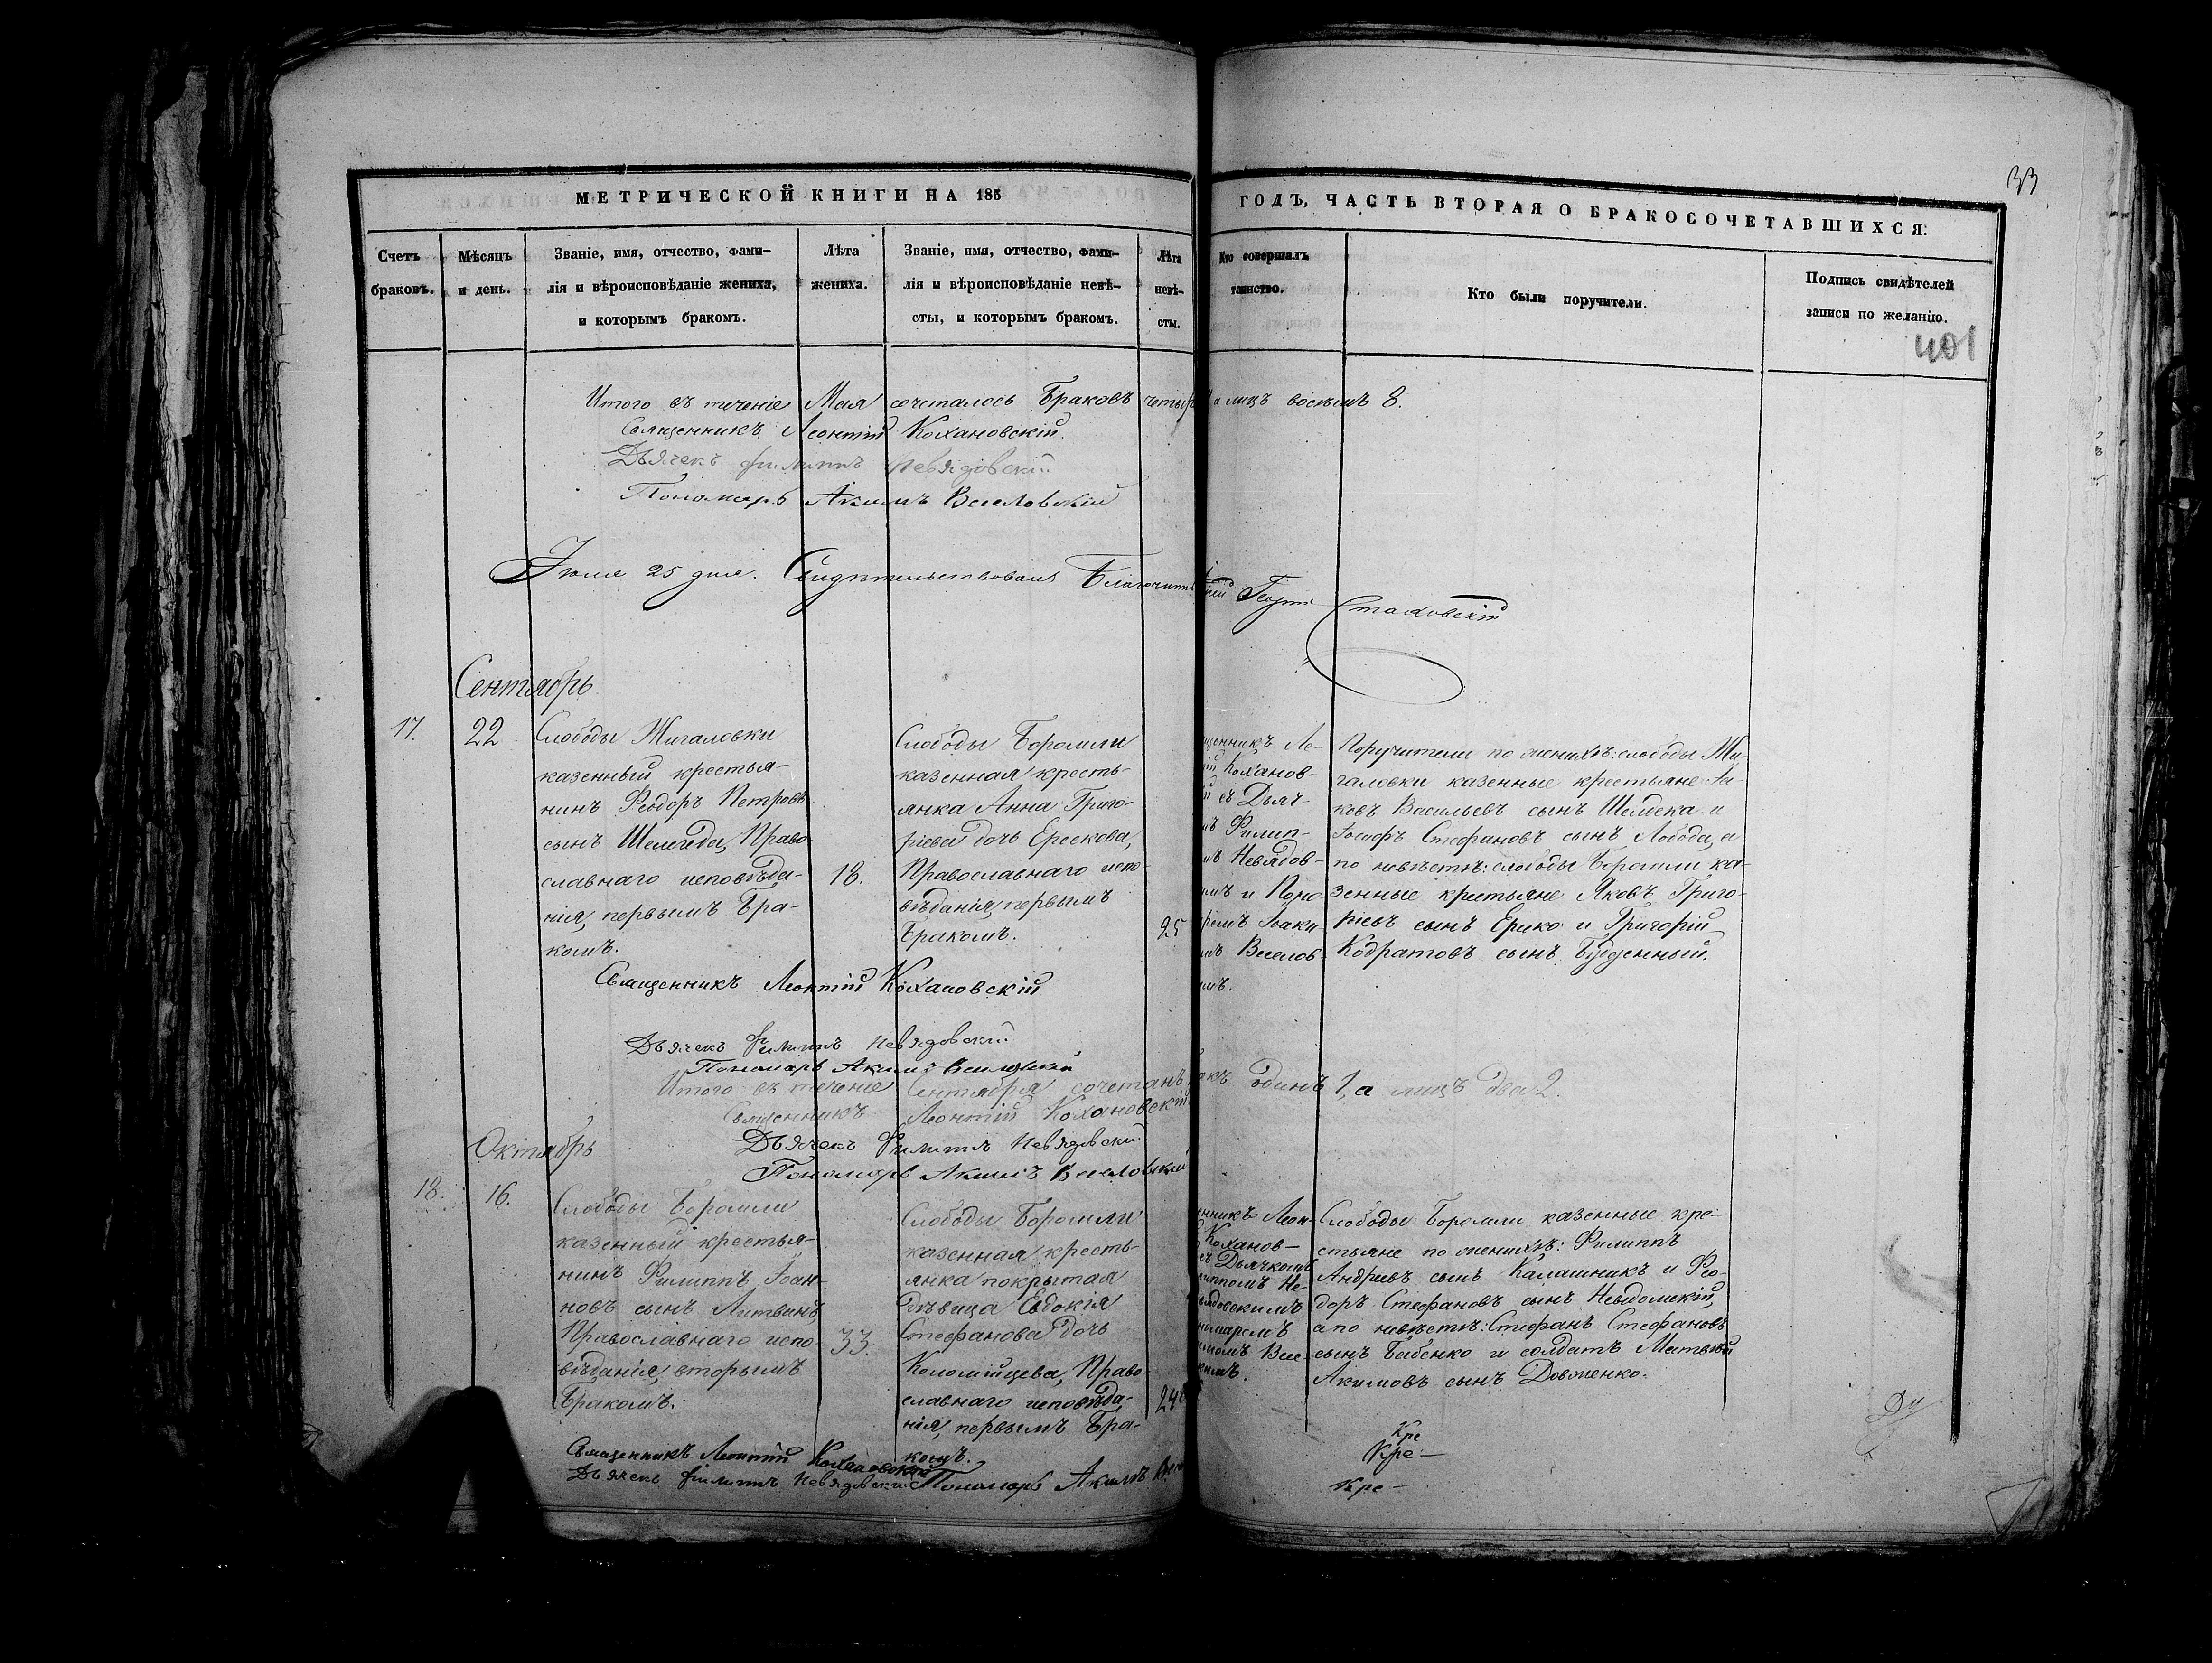 33
МЕТРИЧЕСКОЙ КНИГИ НА 185
ГОДЪ, ЧАСТЬ ВТОРАЯ О БРАКОСОЧЕТАВШИХСЯ.
Счетъ
браковъ.
Мѣсяцъ
и день.
Званіе, имя, отчество, фами-
лія и вѣроисповѣданіе жениха,
и которымъ бракомъ.
Лѣта
жениха.
Званіе, имя, отчество, фами-
лія и вѣроисповѣданіе невѣ-
сты, и которымъ бракомъ.
Лѣта
невѣ-
сты.
Кто совершалъ
таинство.
Кто были поручители.
Подпись свидѣтелей
записи по желанію.
401
Итого въ теченіе Мая сочеталось Браковъ четыр а лицъ восемь 8.
Священникъ Леонтій Кохановскій.
Дьячекъ Филиппъ Невядовскій
Пономарь Акимъ Веселовскій
Іюля 25 дня. Свидѣтельствовалъ Благочинный Георгій Стаховскій
Сентябрь
17.
22
Слободы Жигаловки
казенный крестья-
нинъ Ѳеодоръ Петровъ
сынъ Шелудед, Право-
славнаго исповѣда-
нія, первымъ Бра-
комъ.
18.
Слободы Боромли
казенная кресть-
янка Анна Григо-
ріева дочь Ерескова,
Православнаго испо-
вѣданія, первымъ
Бракомъ.
25
щенникъ Ле-
ій Коханов-
й съ Дьяч-
мъ Филип-
мъ Невядов-
имъ и Поно
ремъ Іоаки
мъ Веселов
имъ.
Поручители по женихѣ: слободы Жи-
галовки казенные крестьяне Іа-
ковъ Васильевъ сынъ Шелудека и
Іосифъ Стефановъ сынъ Лобода, а
по невѣстѣ: слободы Боромли ка-
зенные крестьяне Яковъ Григо-
ріевъ сынъ Ерико и Григорій
Кодратовъ сынъ Буденный.
Священникъ Леонтій Кохановскій
Дьячекъ Филиппъ Невядовскій
Пономарь Акимъ Веселовскій
Итого въ теченіе Сентября сочетанъ акъ одинъ 1, а лицъ два 2.
Священникъ Леонтій Кохановскій
Дьячекъ Филиппъ Невядовскій
Пономарь Акимъ Веселовскій
Октябрь
18.
16.
Слободы Боромли
казенный крестья-
нинъ Филиппъ Іоан-
новъ сынъ Литвинъ,
Православнаго испо-
вѣданія, вторымъ
Бракомъ.
33.
Слободы Боромли
казенная кресть-
янка покрытая
дѣвица Евдокія
Стефанова дочь
Коломійцева, Право-
славнаго исповѣда-
нія, первымъ Бра-
комъ.
24
енникъ Леон-
Коханов-
съ Дьячкомъ
липпомъ Не-
вядовскимъ
номаремъ
имомъ Весе-
кимъ.
Слободы Боромли казенные кре-
стьяне по женихѣ: Филиппъ
Андреевъ сынъ Калашникъ и Ѳео-
доръ Стефановъ сынъ Невдомскій,
а по невѣстѣ: Стефанъ Стефановъ
сынъ Бабенко и солдатъ Матвѣй
Акимовъ сынъ Довженко.
Священникъ Леонтій Кохановскій
Дьячекъ Филиппъ Невядовскій Пономарь Акимъ
Кре
Кре-
Кре-